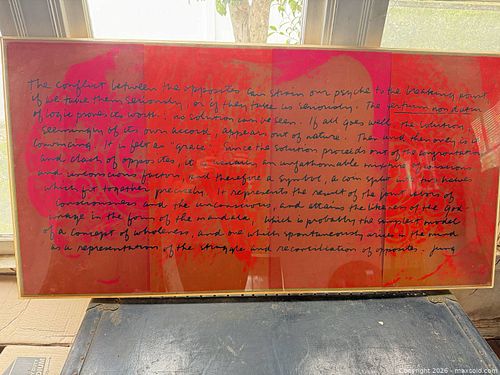 The conflict between the opposites can strain our psyche to the breaking point,
if we take them seriously, or if they take us seriously. The tertium non datur
of logic proves its worth: no solution can be seen. If all goes well, the solution,
seemingly of its own accord, appears out of nature. Then and then only is it
convincing. It is felt as "grace". Since the solution proceeds out of the confrontation
and clash of opposites, it is usually an unfathomable mixture of conscious
and unconscious factors, and therefore a symbol, a coin split in two halves
which fit together precisely. It represents the result of the joint labors of
consciousness and the unconscious, and attains the likeness of the God
image in the form of the mandala, which is probably the simplest model
of a concept of wholeness, and one which spontaneously arises in the mind
as a representation of the struggle and reconciliation of opposites. - Jung
Copyright 2026 - maxsold.com